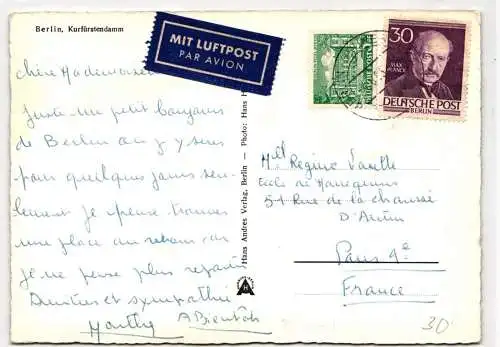 Berlin, Kurfürstendamm
MIT LUFTPOST
PAR AVION
30
MAX PLANCK
DEUTSCHE POST
BERLIN
Chère Mademoiselle
Juste un petit bonjour
de Berlin où j'y serai
pour quelques jours seu-
lement je pense trouver
une place au retour car
je ne pense plus repartir
Amitiés et sympathie
Marthy
Hans Andres Verlag, Berlin - Photo: Hans
Mlle Regine
Ecole de Mannequins
51 Rue de la chaussée
D'Antin
Paris 9e
France
30